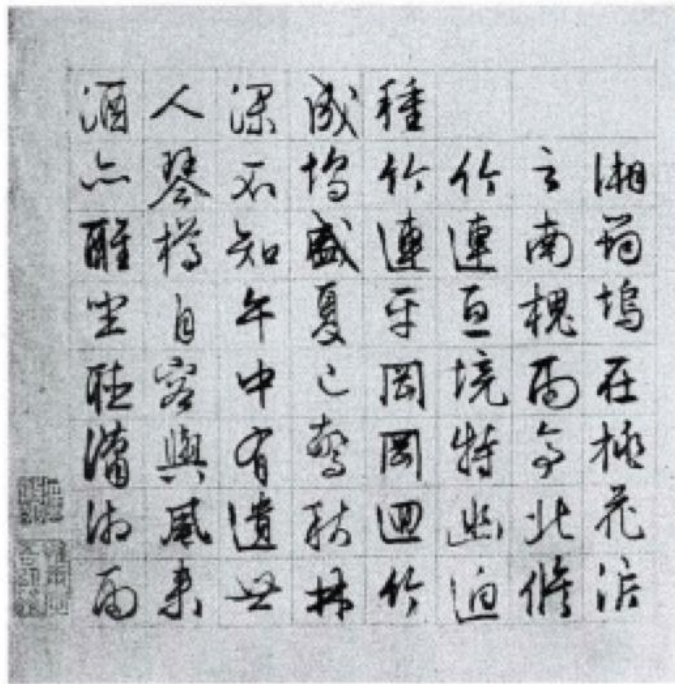 湘筠塢在桃花沜
之南槐雨亭北脩
竹連亘境特幽迥
種竹連平岡岡迴竹
成塢盛夏已驚秋林
深不知午中有遺世
人琴樽自容與風來
酒亦醒坐聽瀟湘雨